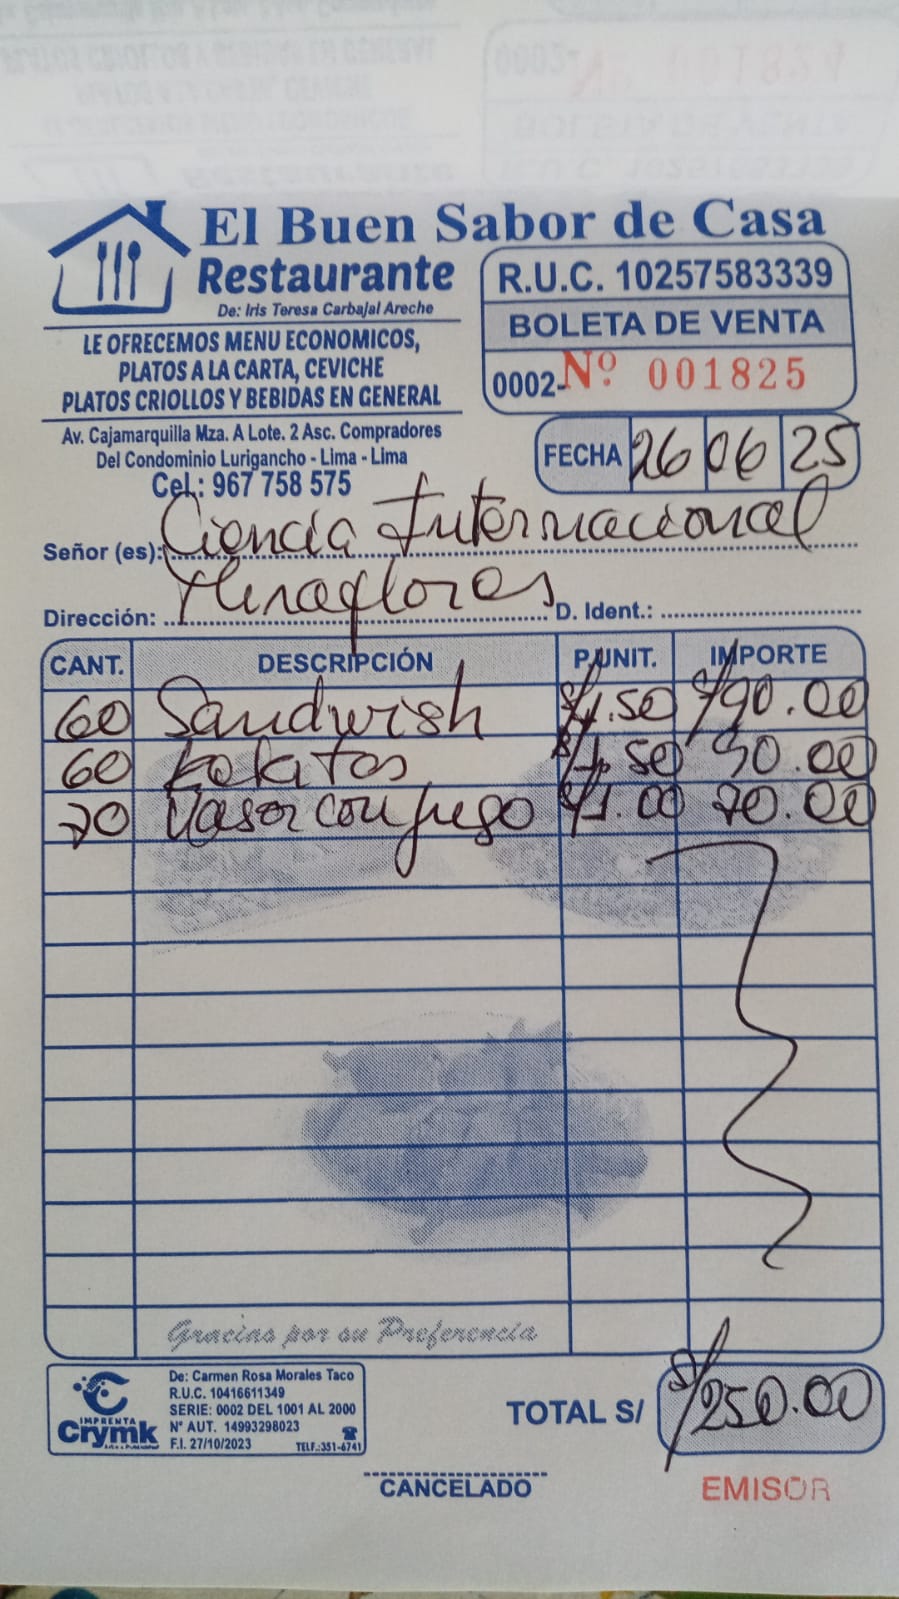 El Buen Sabor de Casa
Restaurante
De: Iris Teresa Carbajal Areche
LE OFRECEMOS MENU ECONOMICOS,
PLATOS A LA CARTA, CEVICHE
PLATOS CRIOLLOS Y BEBIDAS EN GENERAL
Av. Cajamarquilla Mza. A Lote. 2 Asc. Compradores
Del Condominio Lurigancho - Lima - Lima
Cel.: 967 758 575
R.U.C. 10257583339
BOLETA DE VENTA
0002- Nº 001825
FECHA 26 06 25
Señor (es): Ciencia Internacional
Dirección: Miraflores D. Ident.:
CANT. DESCRIPCIÓN P. UNIT. IMPORTE
60 Sandwish S/1.50 S/90.00
60 S/1.50 90.00
70 Vasos con jugo S/1.00 70.00
Gracias por su Preferencia
IMPRENTA
Crymk
De: Carmen Rosa Morales Taco
R.U.C. 10416611349
SERIE: 0002 DEL 1001 AL 2000
Nº AUT. 14993298023
F.I. 27/10/2023 TELF.:351-6741
TOTAL S/ S/250.00
CANCELADO
EMISOR